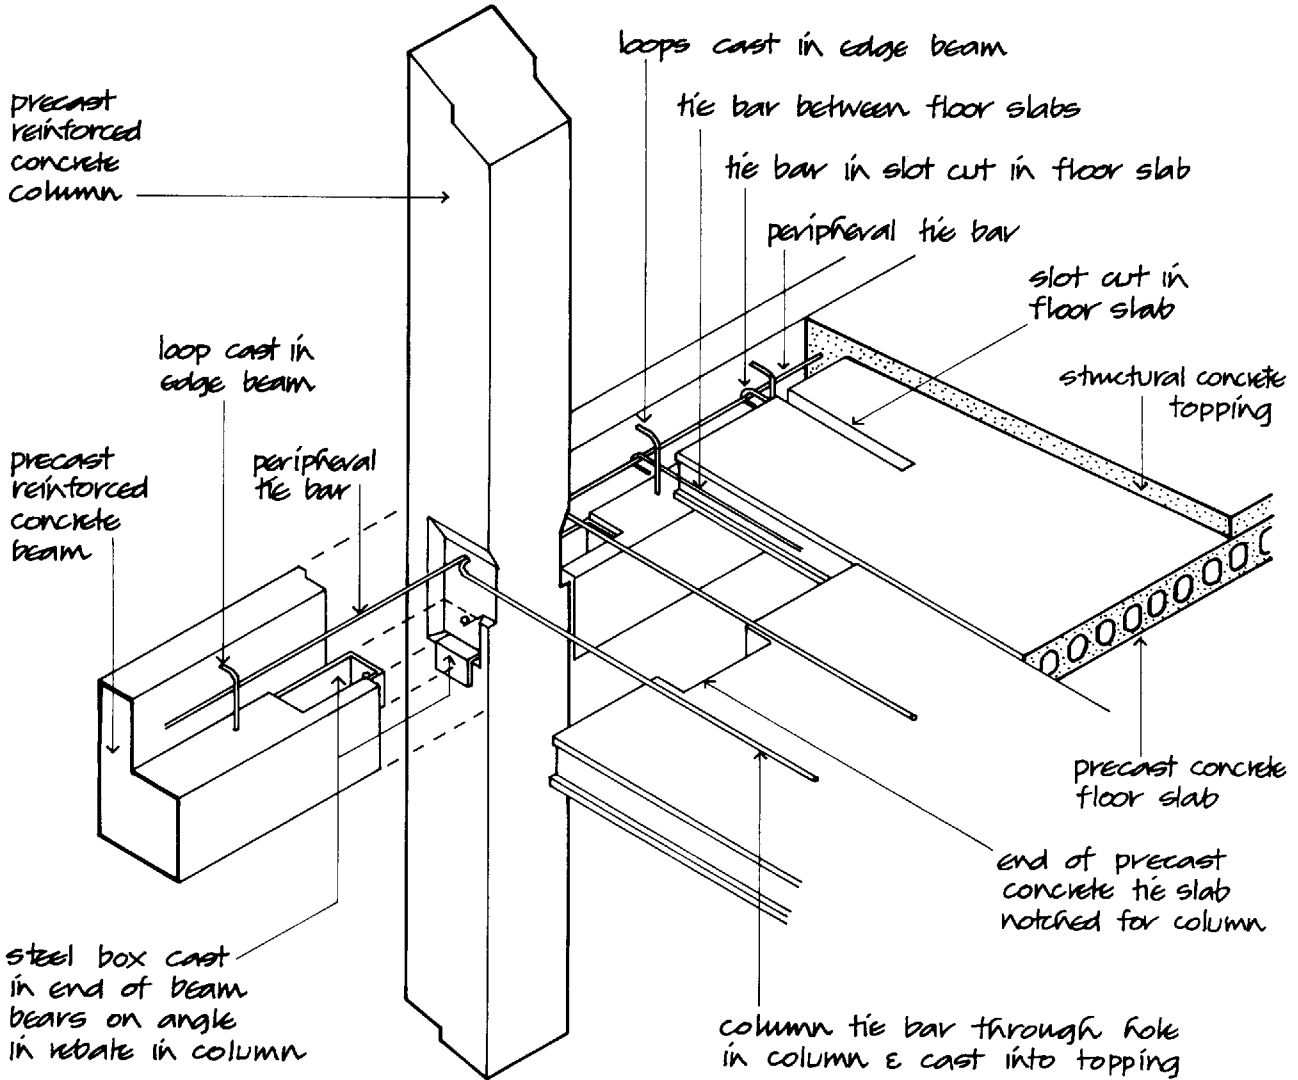 loops cast in edge beam
tie bar between floor slabs
tie bar in slot cut in floor slab
peripheral tie bar
slot cut in
floor slab
structural concrete
topping
precast
reinforced
concrete
column
loop cast in
edge beam
precast
reinforced
concrete
beam
peripheral
tie bar
precast concrete
floor slab
end of precast
concrete tie slab
notched for column
steel box cast
in end of beam
bears on angle
in rebate in column
column tie bar through hole
in column & cast into topping